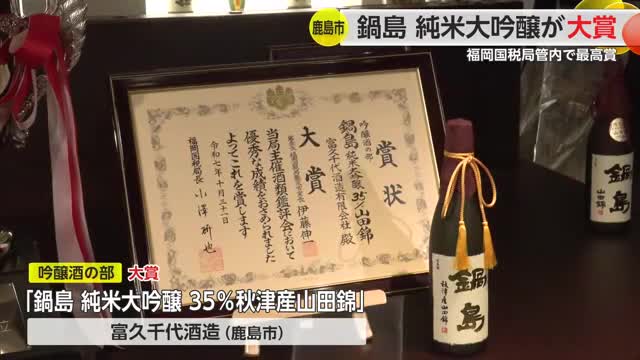 鹿島市
鍋島 純米大吟醸が 大賞
福岡国税局管内で最高賞
賞状
吟醸酒の部
鍋島 純米大吟醸35%山田錦
富久千代酒造有限会社 殿
大賞
伊藤伸一
当局主催酒類鑑評会において
優秀な成績をおさめられました
よってこれを賞します
令和七年十月三十一日
福岡国税局長 小澤研也
鍋島
秋津産山田錦
鍋島
山田錦
吟醸酒の部 大賞
「鍋島 純米大吟醸 35%秋津産山田錦」
富久千代酒造 (鹿島市)